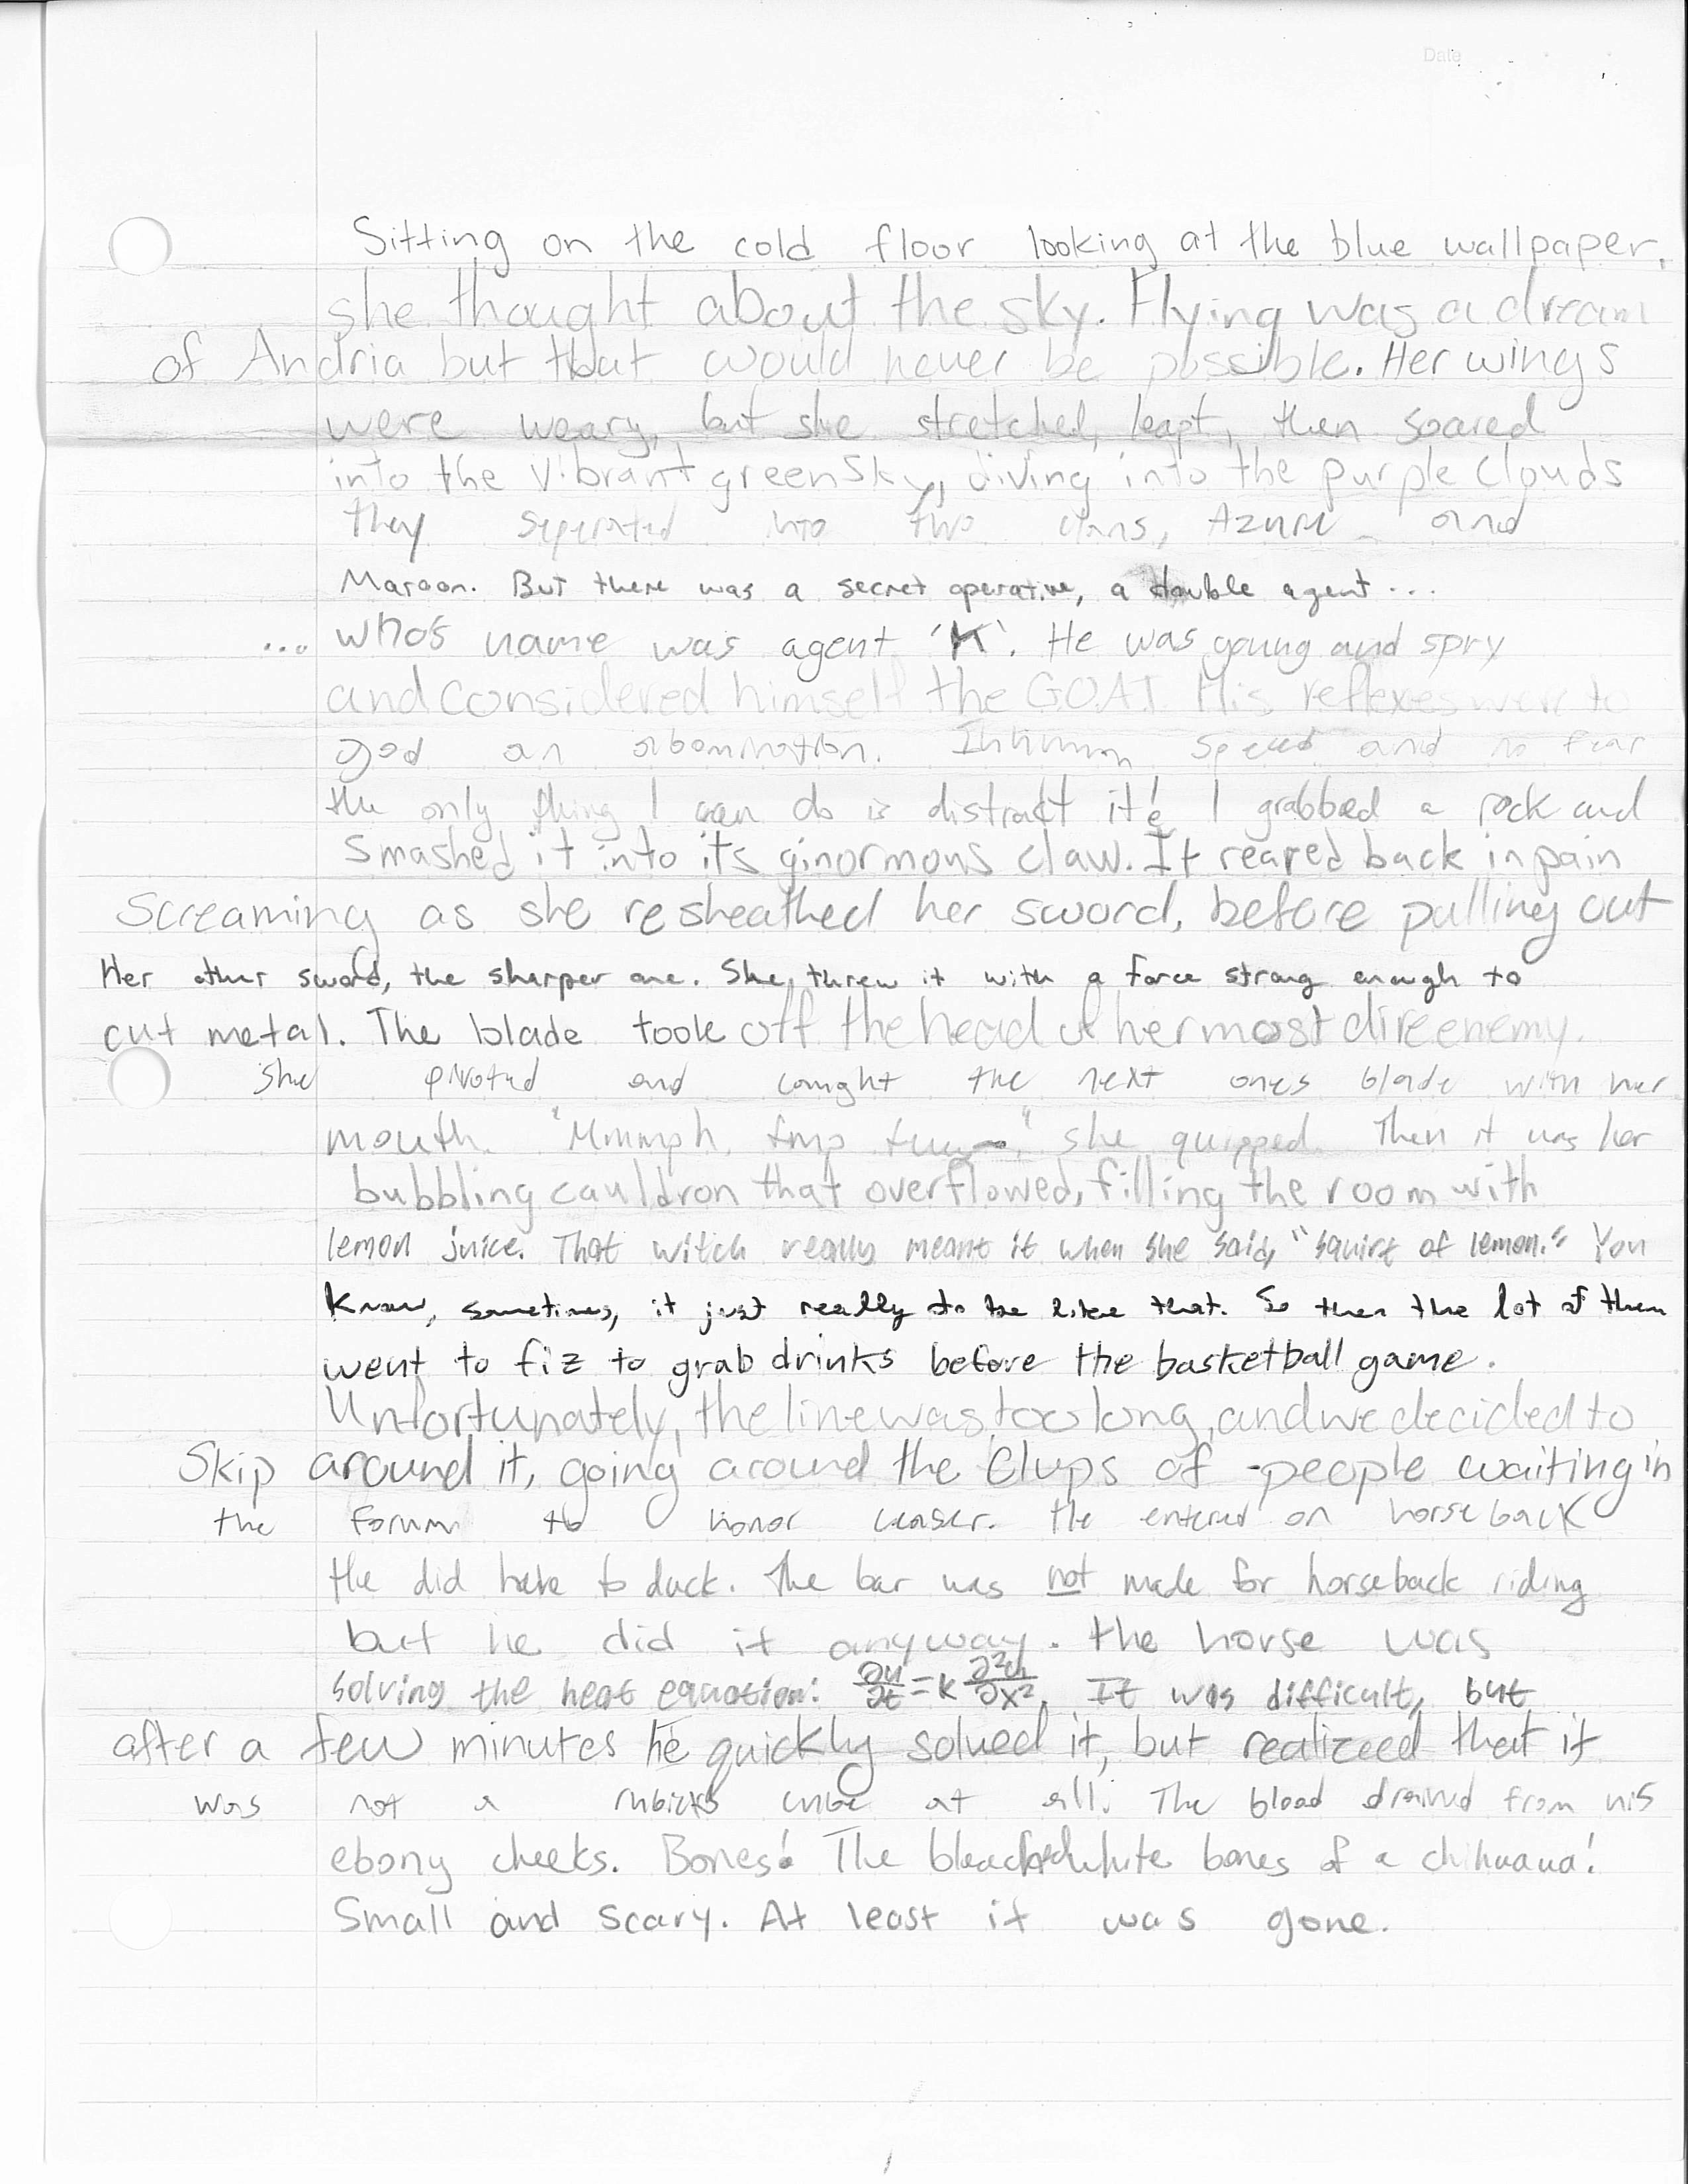 Date
Sitting on the cold floor looking at the blue wallpaper,
she thought about the sky. Flying was a dream
of Andria but that would never be possible. Her wings
were weary, but she stretched, leapt, then soared
into the vibrant green sky, diving into the purple clouds
they seperated into two clans, Azure and
Maroon. But there was a secret operative, a double agent...
... who's name was agent 'K'. He was young and spry
and considered himself the G.O.A.T. His reflexes were to
god an abomination. Inhuman speed and no fear
the only thing I can do is distract it! I grabbed a rock and
smashed it into its ginormous claw. It reared back in pain
Screaming as she resheathed her sword, before pulling out
Her other sword, the sharper one. She threw it with a force strong enough to
cut metal. The blade took off the head of her most dire enemy.
She pivoted and caught the next ones blade with her
mouth. "Mmmph, fmp," she quipped. Then it was her
bubbling cauldron that overflowed, filling the room with
lemon juice. That witch really meant it when she said, "squirt of lemon." You
know, sometimes, it just really do be like that. So then the lot of them
went to fiz to grab drinks before the basketball game.
Unfortunately, the line was too long, and we decided to
Skip around it, going around the Clups of people waiting in
the forum to honor ceaser. He entered on horseback
He did have to duck. The bar was not made for horseback riding
but he did it anyway. the horse was
solving the heat equation: ∂u/∂t = k ∂²u/∂x². It was difficult, but
after a few minutes he quickly solved it, but realizeed that it
was not a rubicks cube at all. The blood drained from his
ebony cheeks. Bones! The bleached white bones of a chihuaua!
Small and scary. At least it was gone.